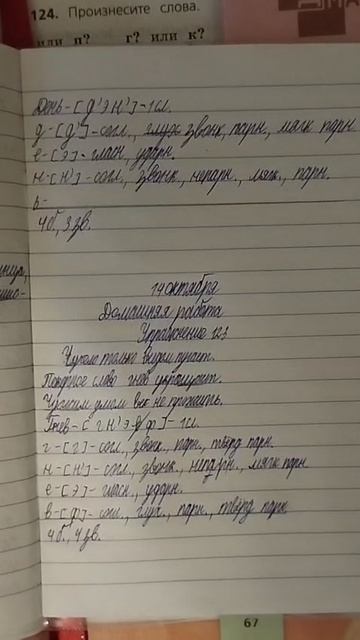 124. Произнесите слова.
или п? г? или к?
День-[д'эн']-1сл.
д-[д']-согл., звонк., парн., мягк. парн
е-[э]-гласн., ударн.
н-[н']-согл., звонк., непарн., мягк., парн.
ь-
4б., 3зв.
14 октября
Домашняя работа
Упражнение 123
только видом пугает.
слово гнев укрощает.
Чужим умом век не прожить.
Гнев-[гн'эф]-1сл.
г-[г]-согл., звонк., парн., твёрд парн.
н-[н']-согл., звонк., непарн., мягк парн.
е-[э]-гласн., ударн.
в-[ф]-согл., глух., парн., твёрд парн.
4б., 4зв.
67